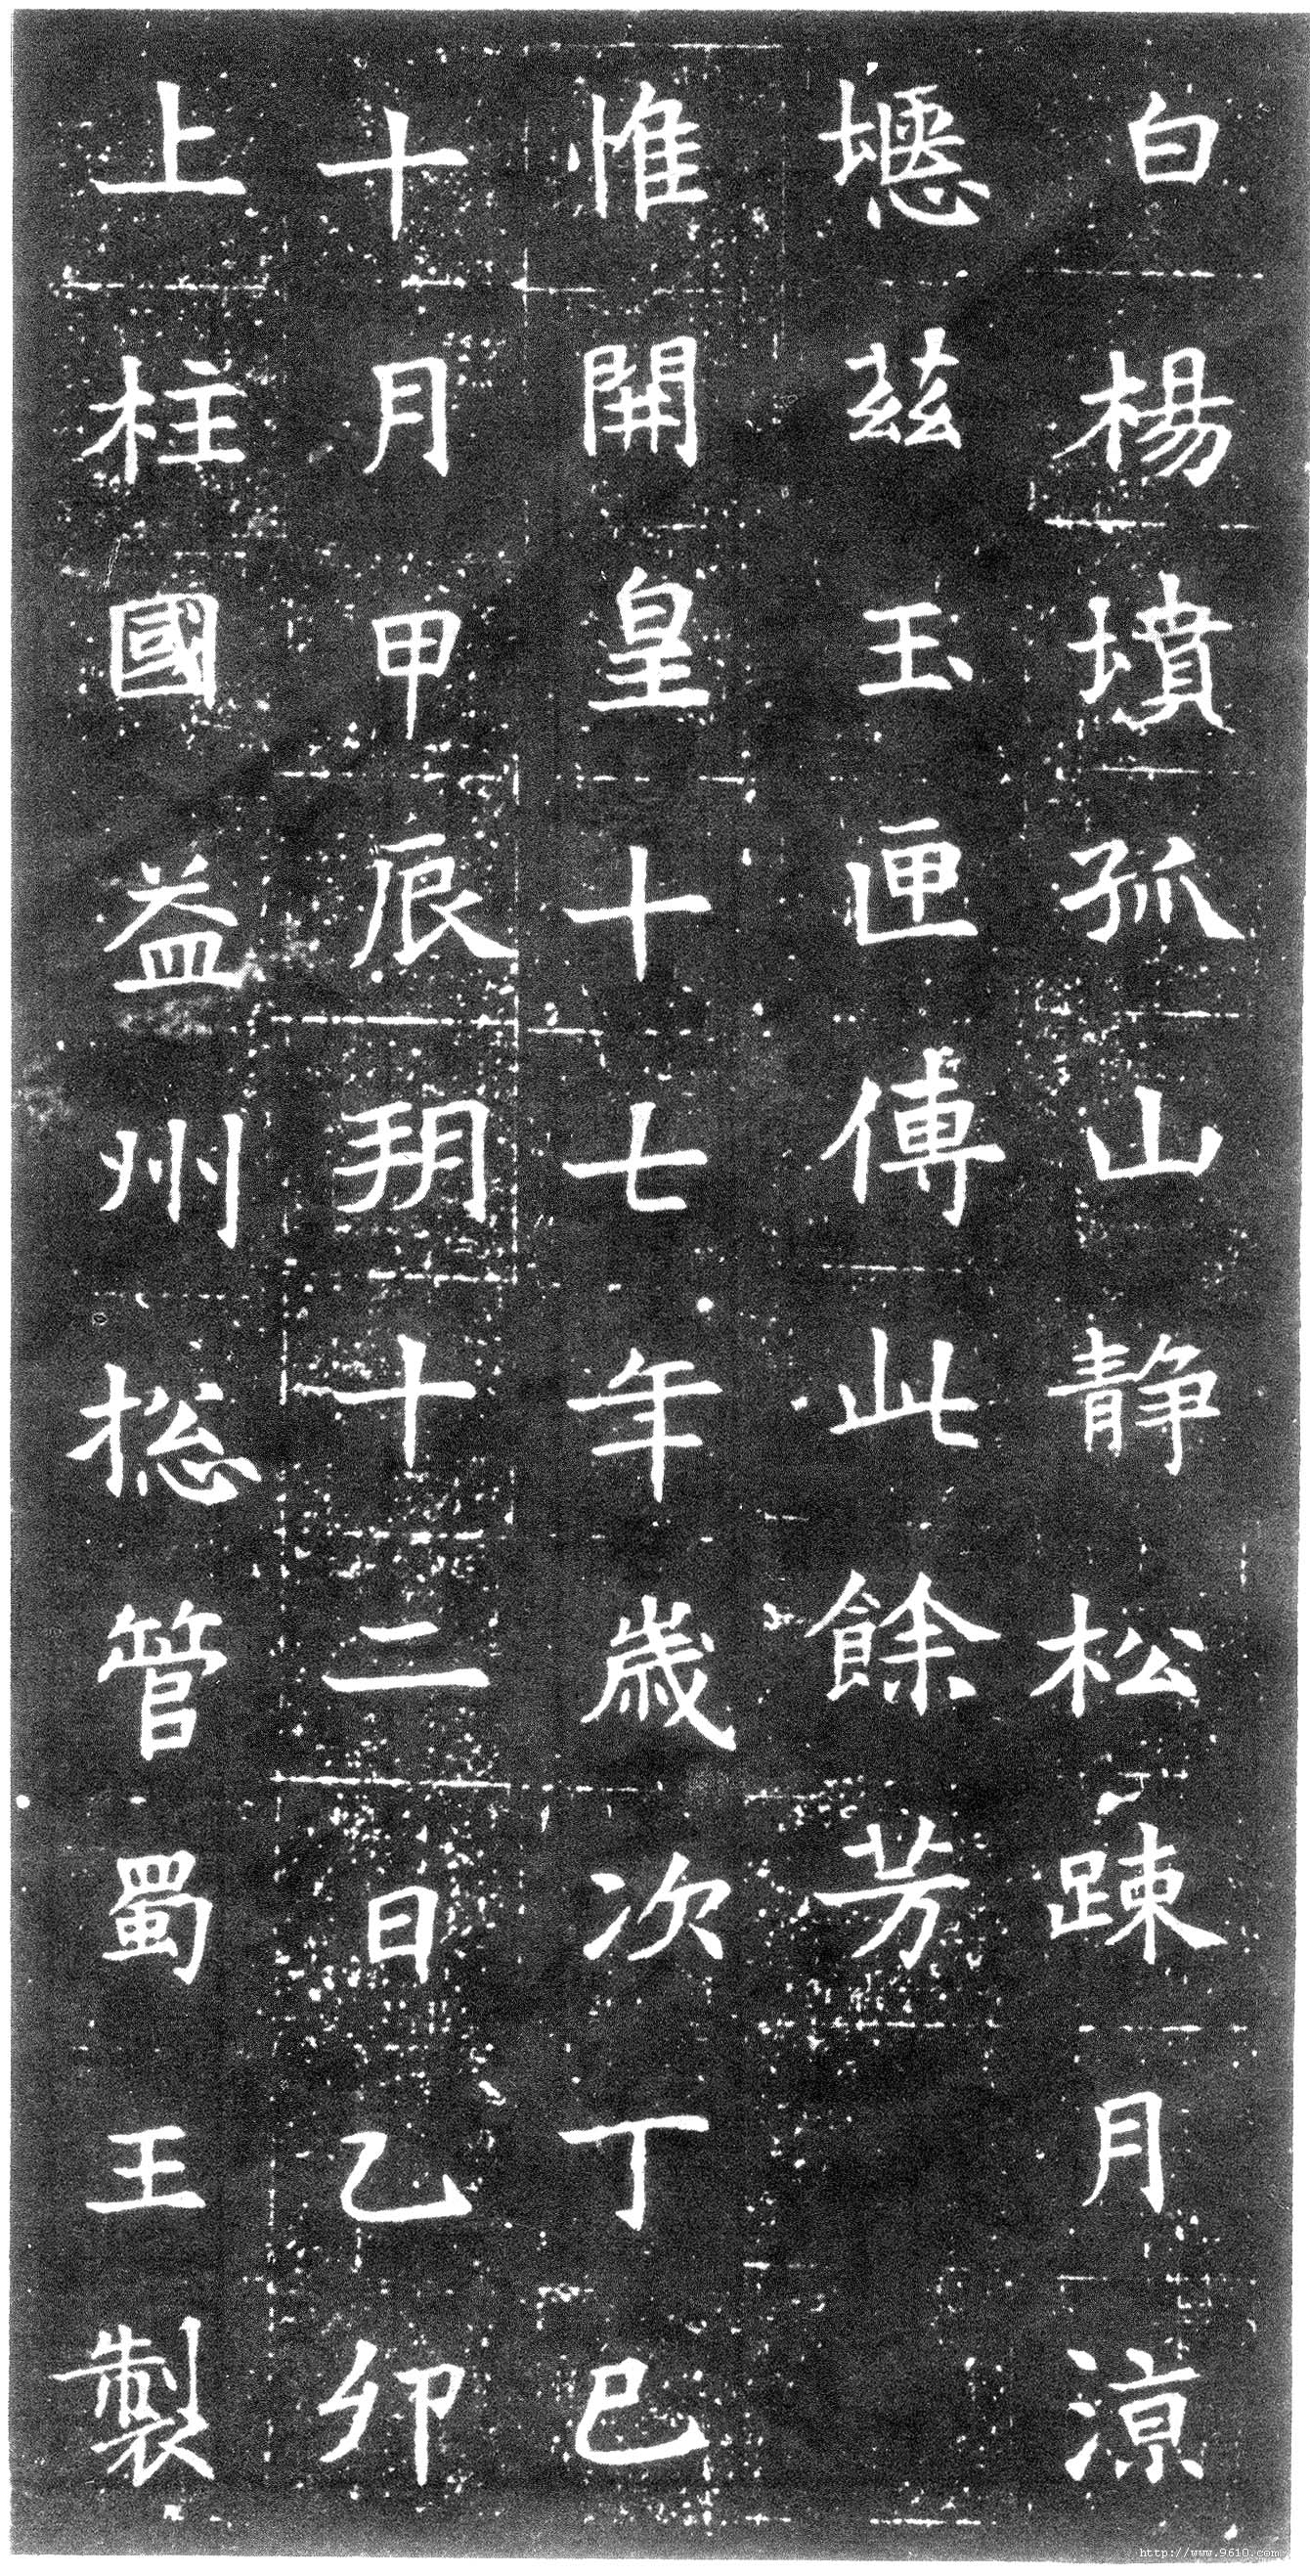 白楊墳孤山静松踈月涼
壥茲玉匣傳此餘芳
惟開皇十七年歳次丁巳
十月甲辰朔十二日乙卯
上柱國益州捴管蜀王製
http://www.9610.com